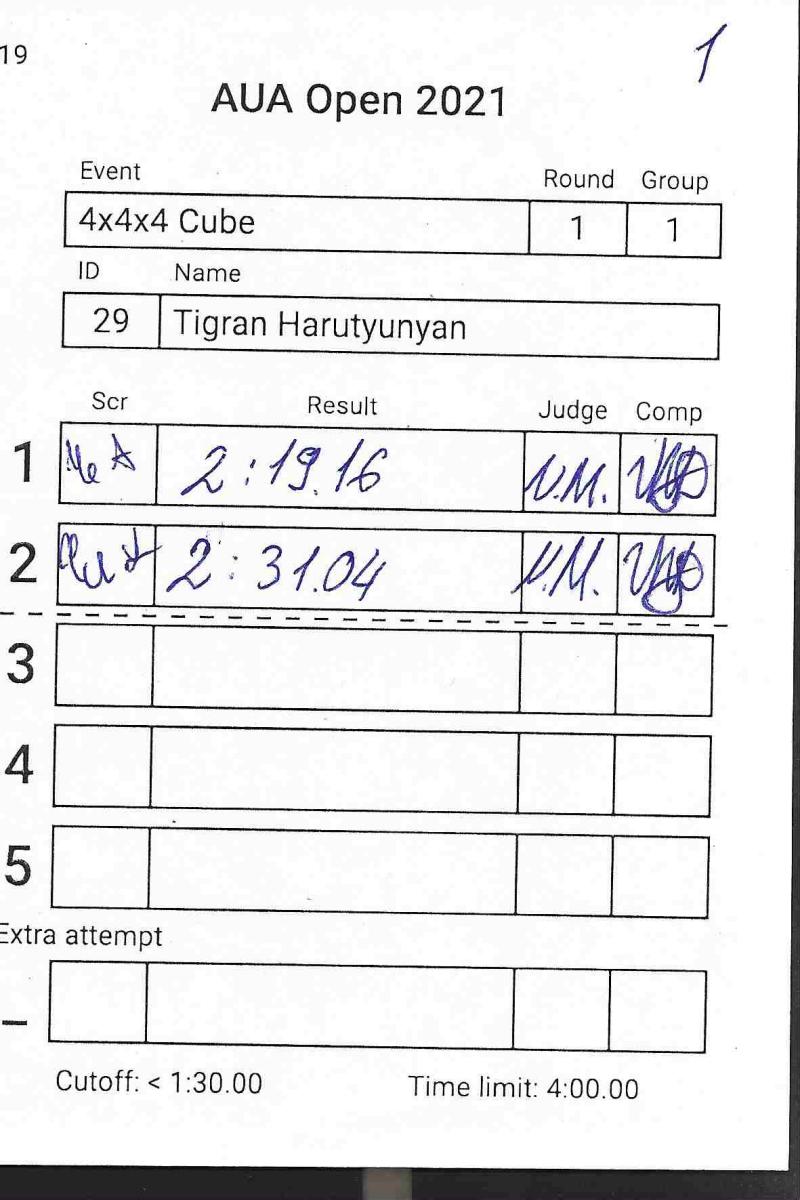 19
1
AUA Open 2021
Event Round Group
4x4x4 Cube 1 1
ID Name
29 Tigran Harutyunyan
Scr Result Judge Comp
1 2:19.16 N.M.
2 2:31.04 N.M.
3
4
5
Extra attempt
_
Cutoff: < 1:30.00 Time limit: 4:00.00